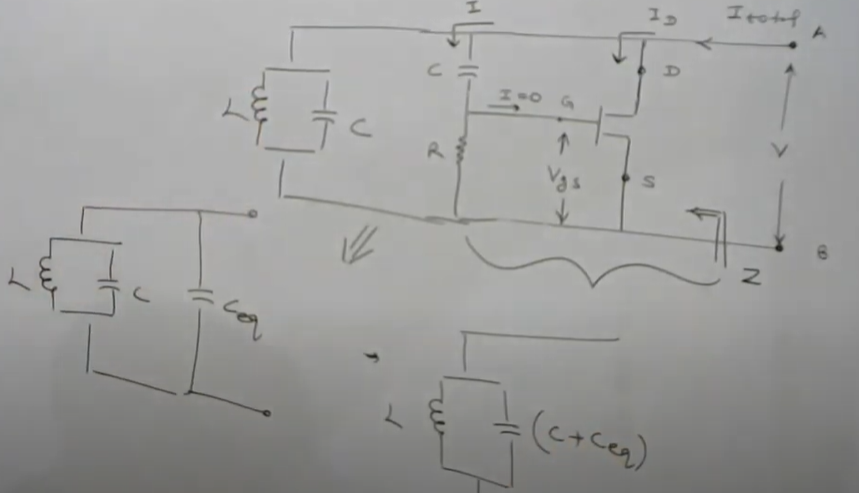 I
I_D
I total
A
C
D
I=0
G
L
C
R
V
Vgs
S
B
Z
L
C
Ceq
L
(C+Ceq)